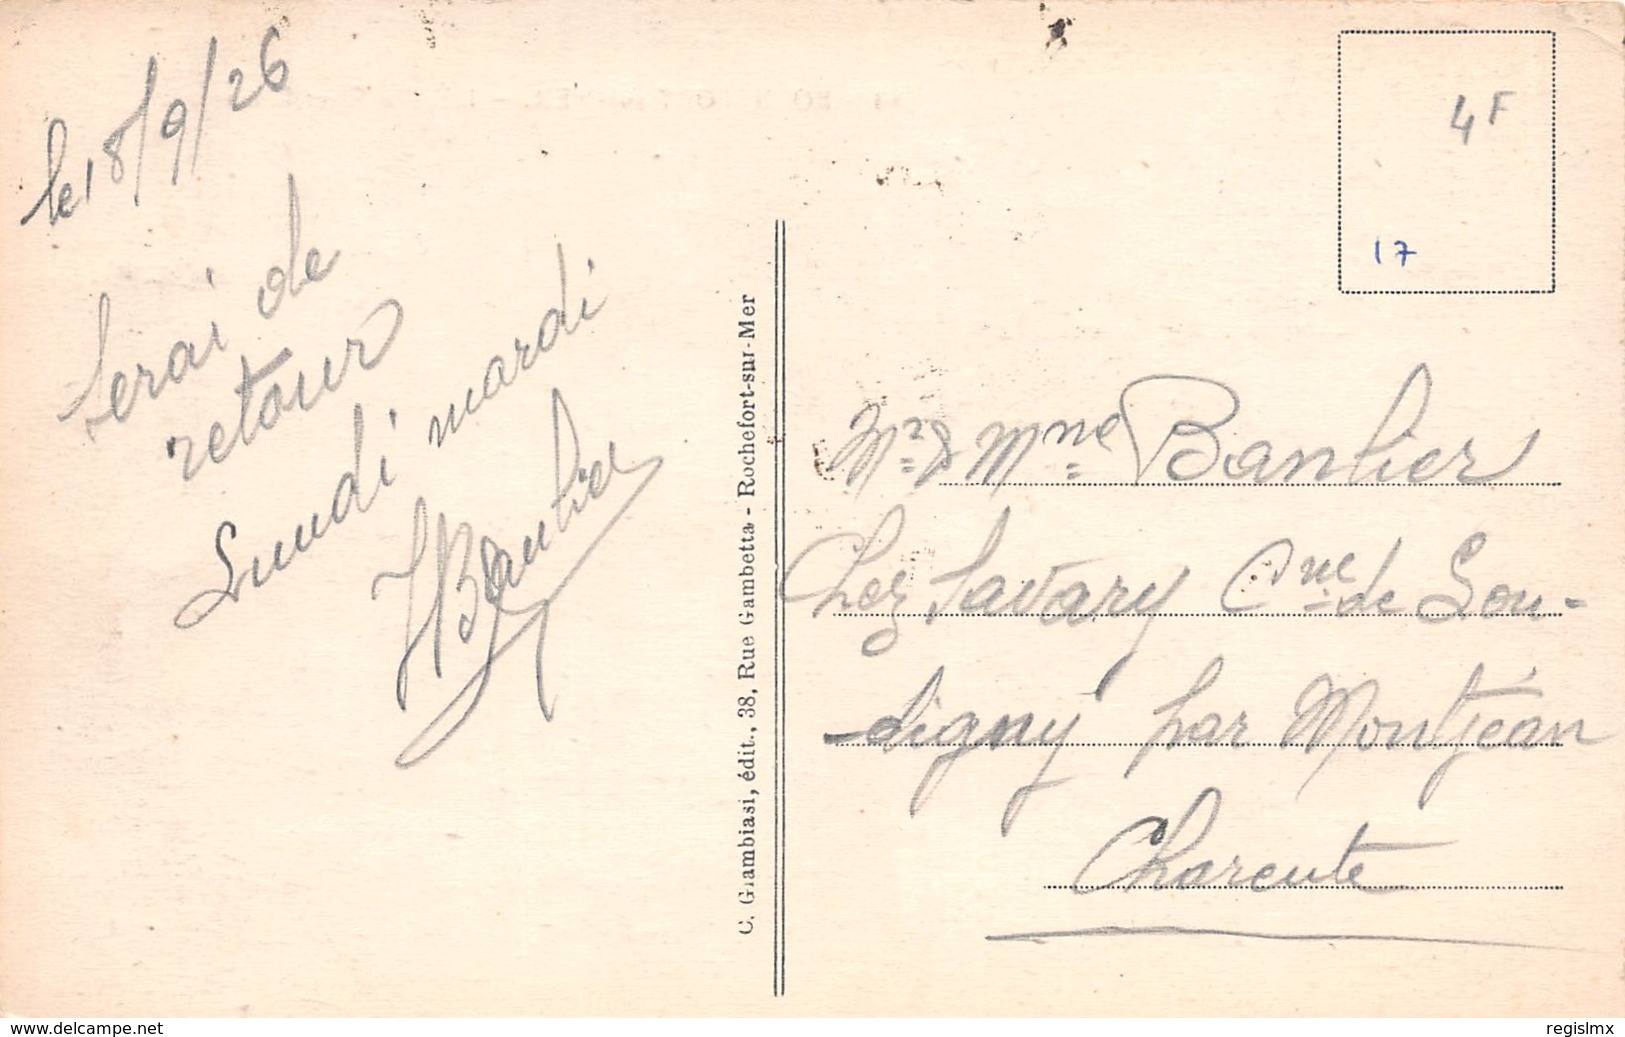 le 18/9/26
Serai de
retour
Lundi mardi
HBanlier
C. Giambiasi, édit., 38, Rue Gambetta - Rochefort-sur-Mer
4F
17
Mr & Mme Banlier
Chez Savary Cne de Sou-
digny par Montjean
Charente
www.delcampe.net
regislmx